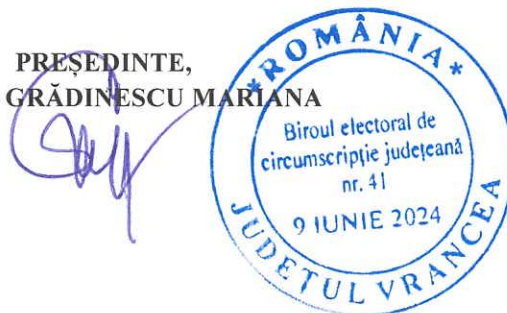 PREȘEDINTE,
GRĂDINESCU MARIANA
*ROMÂNIA*
Biroul electoral de
circumscripție județeană
nr. 41
9 IUNIE 2024
JUDEȚUL VRANCEA